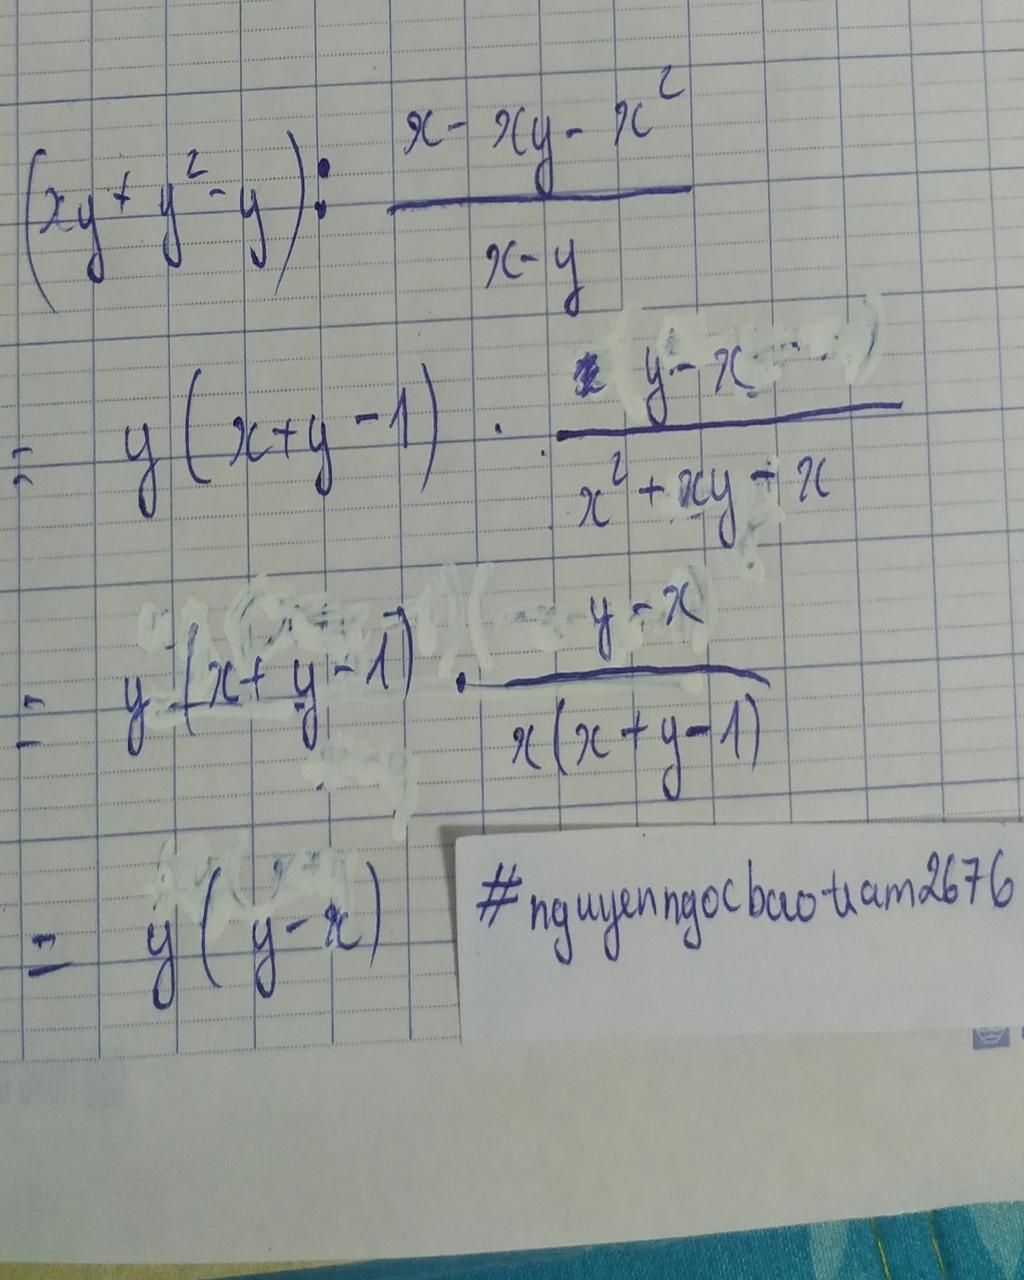 (xy + y² - y) : (x - xy - x²)/(x - y)
= y(x + y - 1) . (y - x)/(x² + xy - x)
= y(x + y - 1) . (y - x)/(x(x + y - 1))
= y(y - x)
#nguyenngocbaotram2676